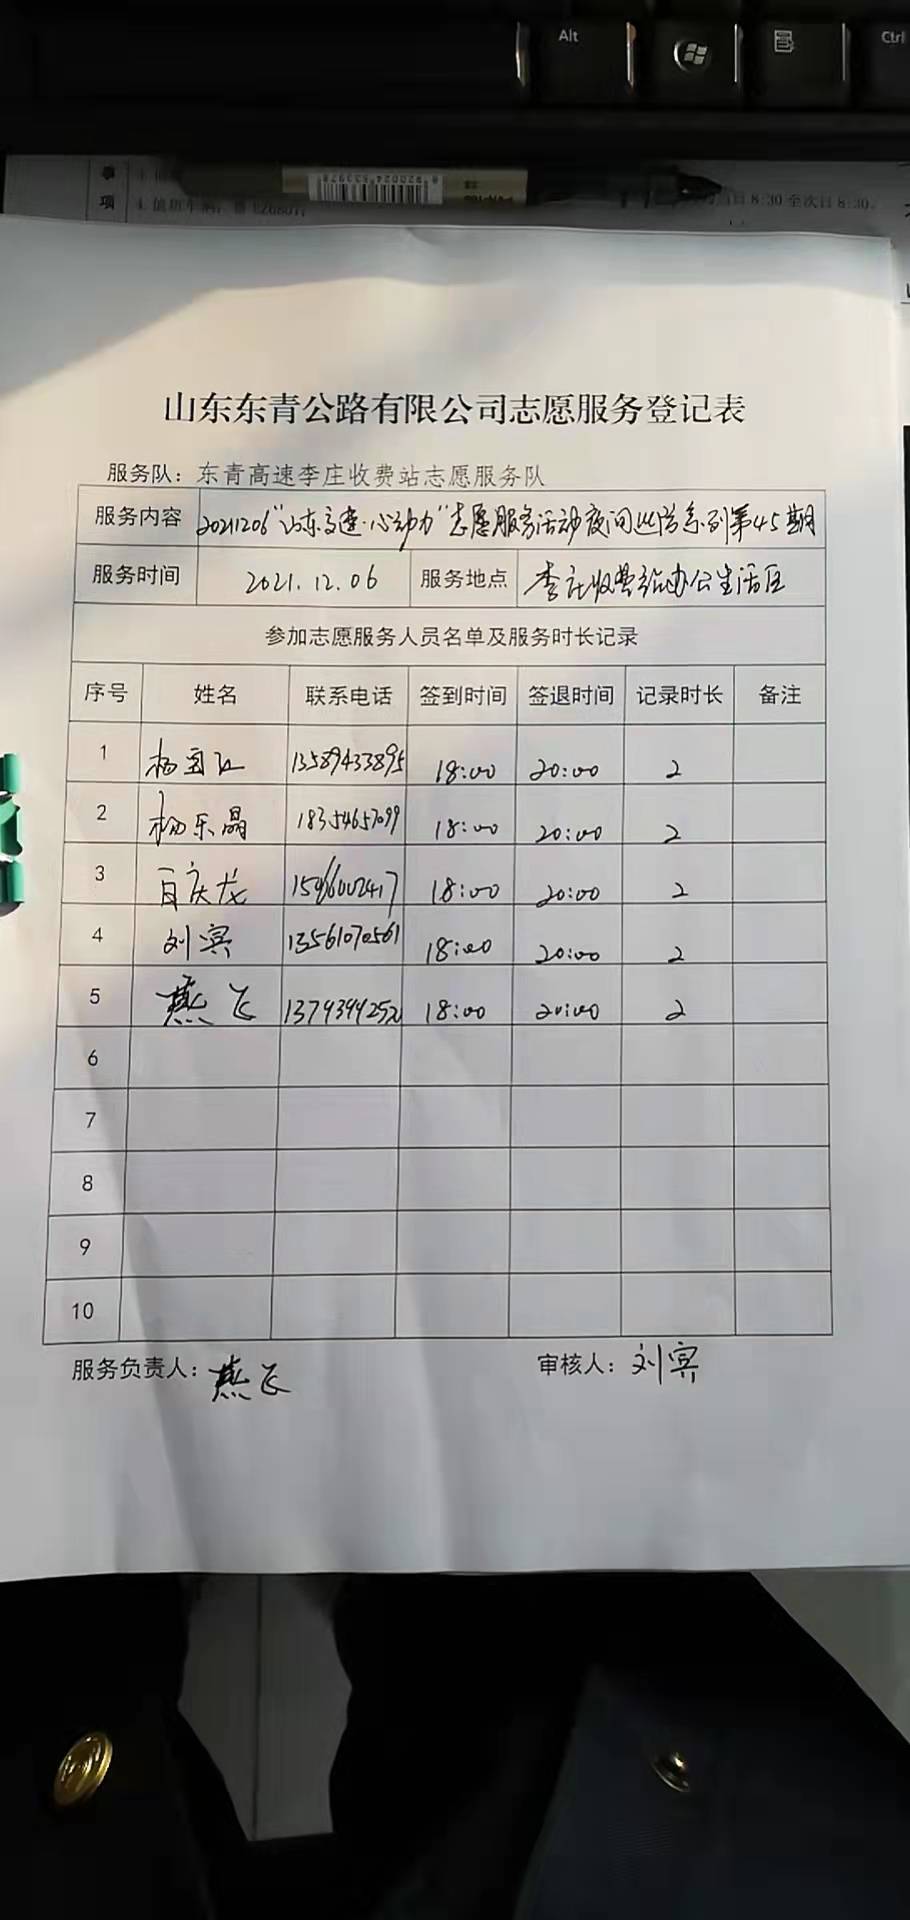 Alt
Ctrl
事
项
当日8:30至次日8:30。
山东东青公路有限公司志愿服务登记表
服务队：东青高速李庄收费站志愿服务队
服务内容 20211206“山东高速·心动力”志愿服务活动夜间巡逻系列第45期
服务时间 2021.12.06 服务地点 李庄收费站办公生活区
参加志愿服务人员名单及服务时长记录
序号 姓名 联系电话 签到时间 签退时间 记录时长 备注
1 13589433895 18:00 20:00 2
2 杨乐晶 18354657099 18:00 20:00 2
3 18:00 20:00 2
4 刘宾 13561070561 18:00 20:00 2
5 燕飞 18:00 20:00 2
6
7
8
9
10
服务负责人：燕飞 审核人：刘宾